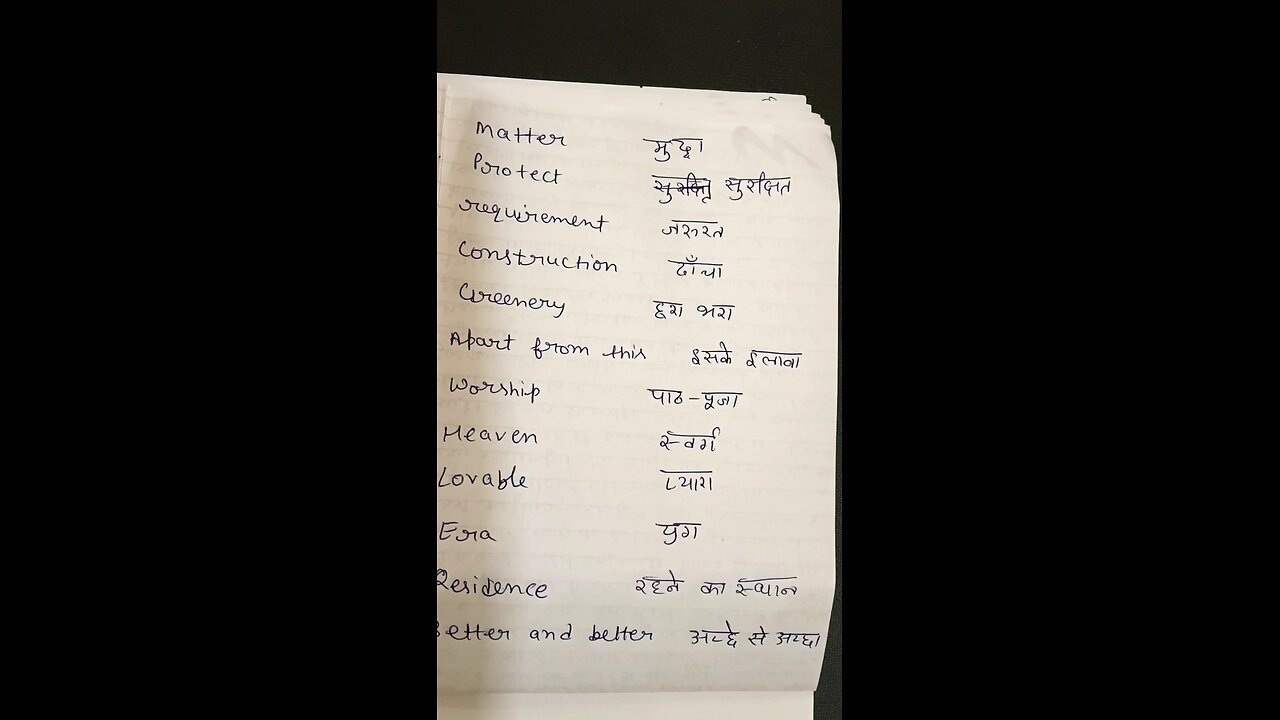 Matter मुद्दा
Protect सुरक्षित
requirement जरुरत
Construction ढाँचा
Greenery हरा भरा
Apart from this इसके इलावा
Worship पाठ-पूजा
Heaven स्वर्ग
Lovable प्यारा
Era युग
Residence रहने का स्थान
Better and better अच्छे से अच्छा